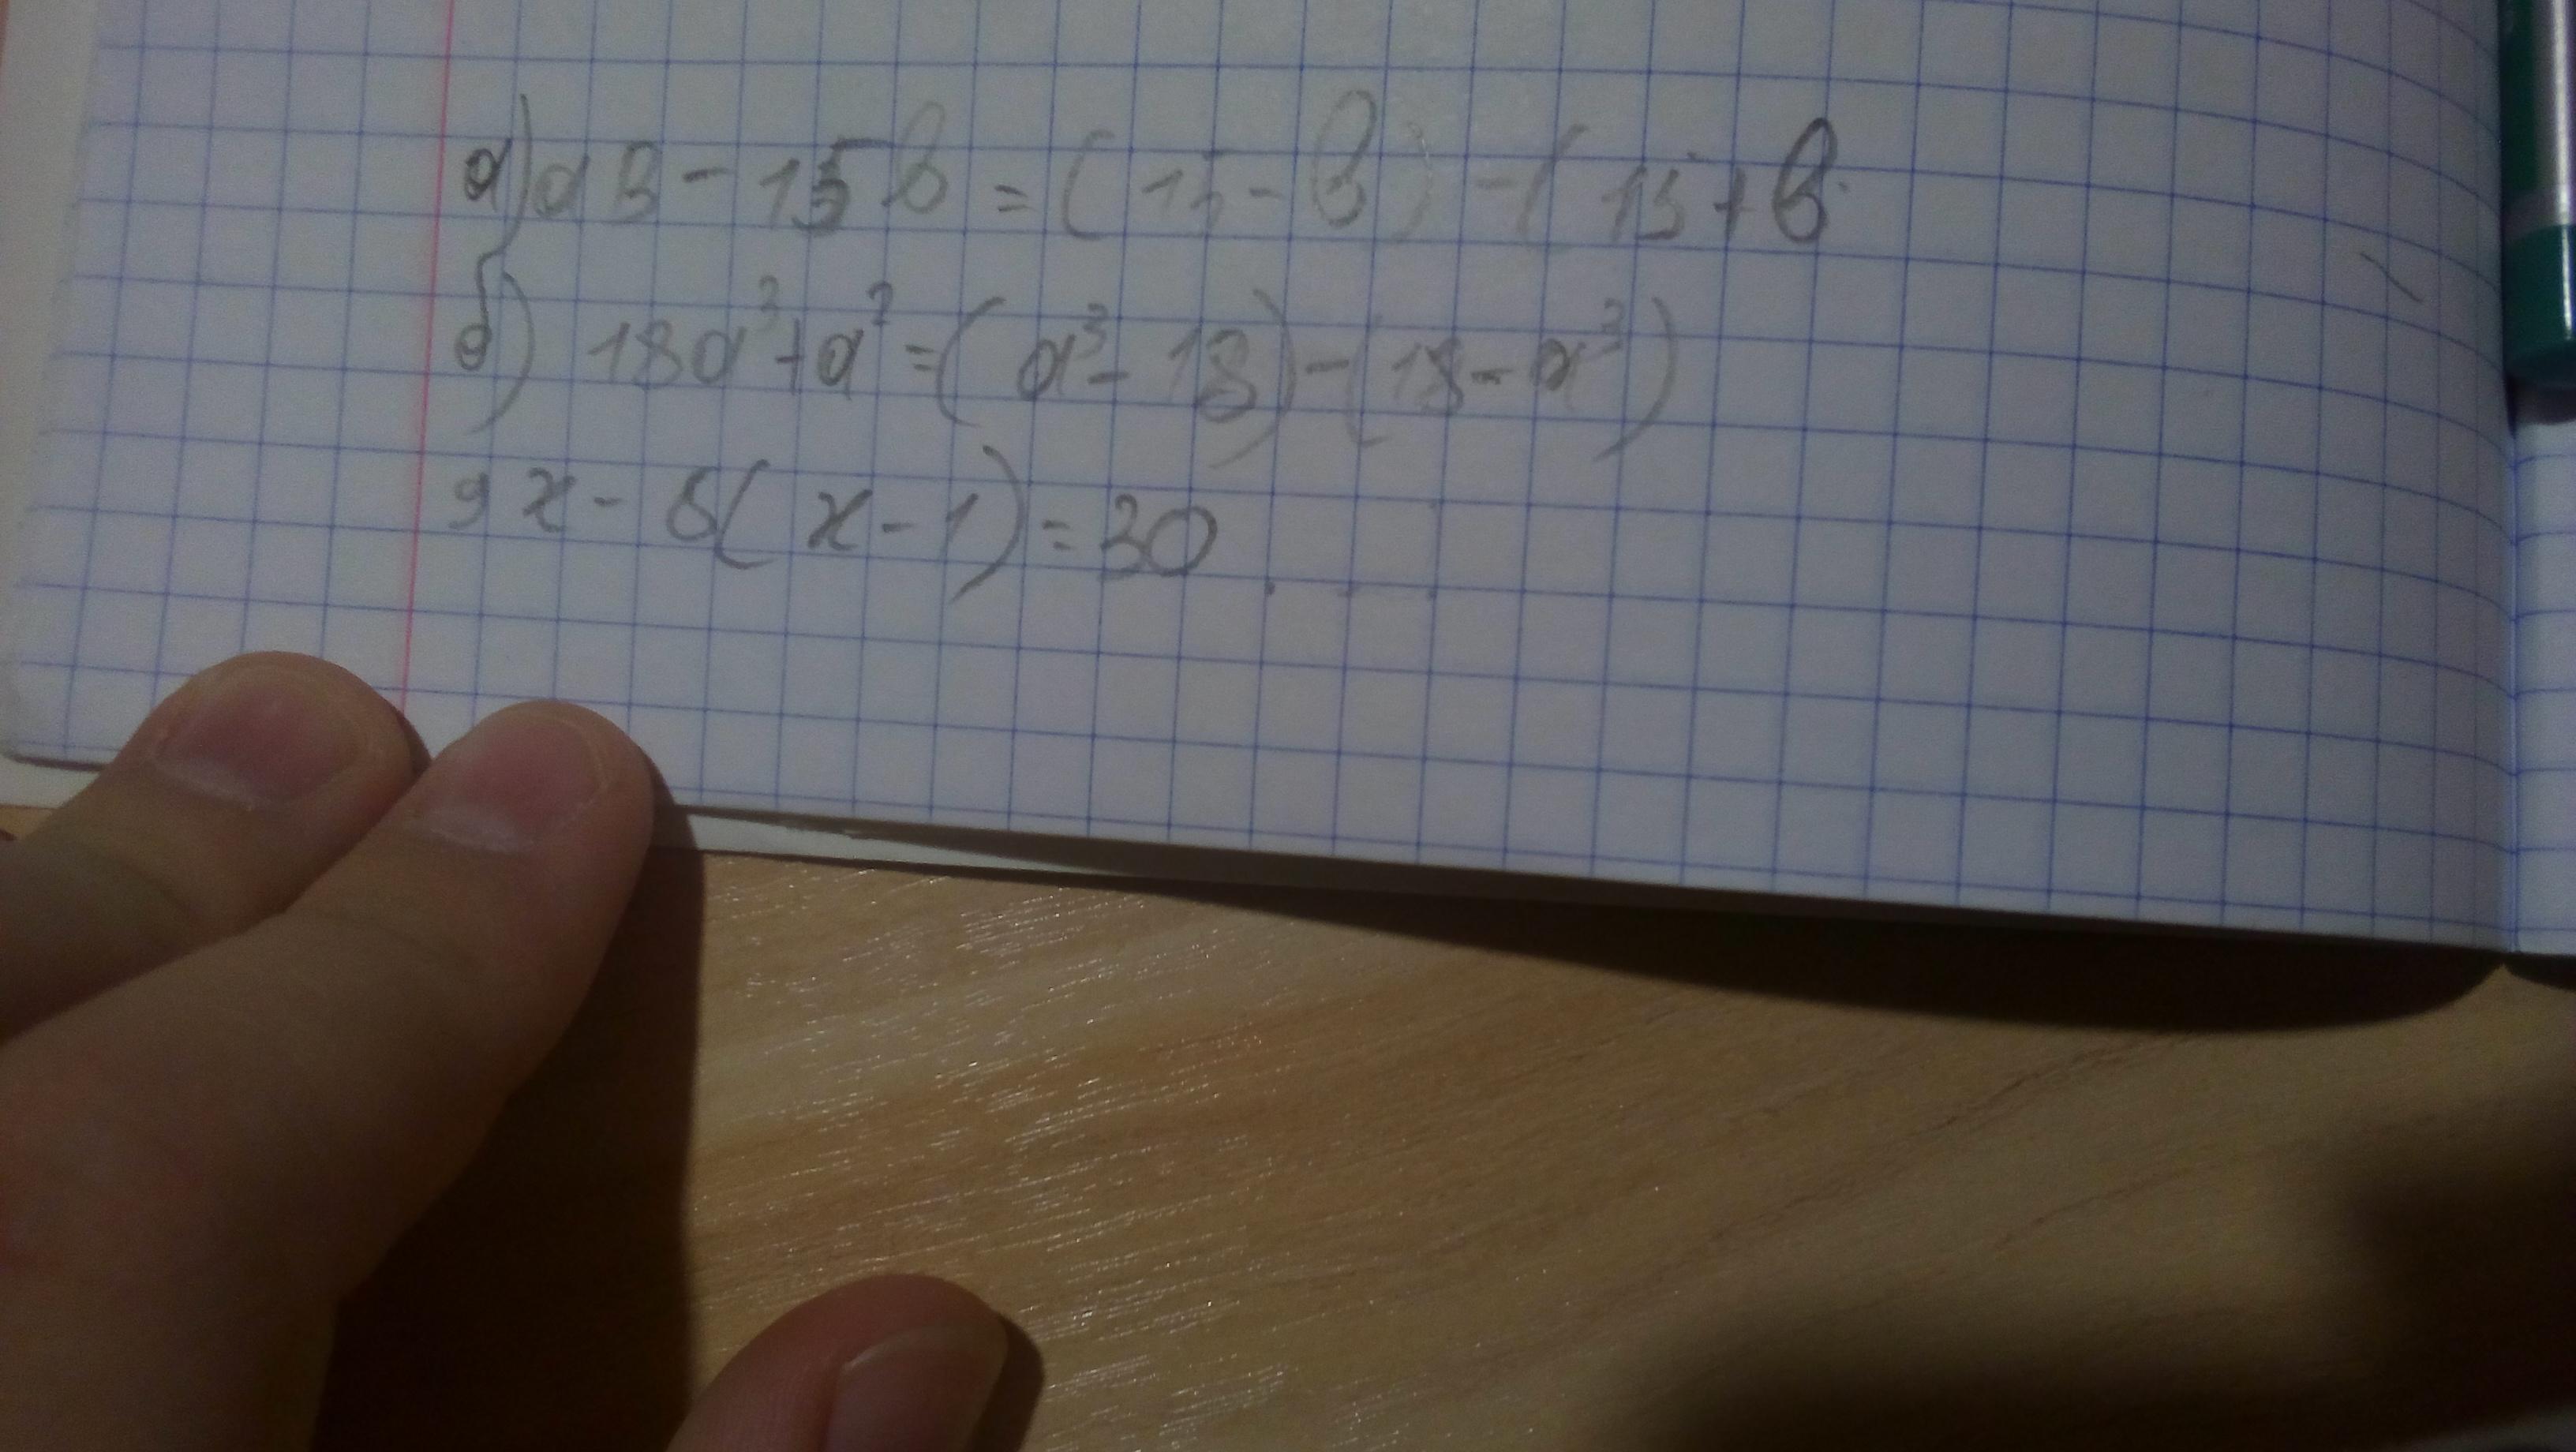 а) ав - 15в = (15 - в) - (15 + в
б) 18а³ + а² = (а³ - 18) - (18 - а³)
9x - 6(x - 1) = 30